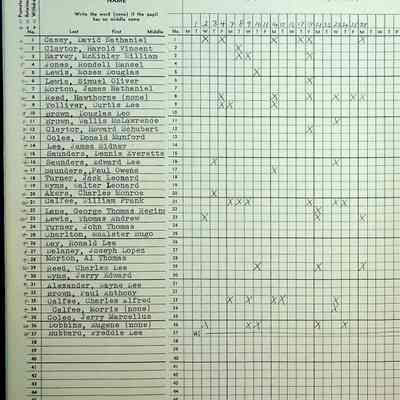 NAME
Write the word (none) if the pupil
has no middle name
No. Last First Middle No.
1 Casey, David Nathaniel 1
2 Claytor, Harold Vincent 2
3 Harvey, McKinley William 3
4 Jones, Rondell Hansel 4
5 Lewis, Moses Douglas 5
6 Lewis, Simuel Oliver 6
7 Morton, James Nathaniel 7
8 Reed, Hawthorne (none) 8
9 Tolliver, Curtis Lee 9
10 Brown, Douglas Leo 10
11 Brown, Wallis McLawrence 11
12 Claytor, Howard Schubert 12
13 Coles, Donald Munford 13
14 Lee, James Sidney 14
15 Saunders, Dennis Everette 15
16 Saunders, Edward Lee 16
17 Saunders, Paul Owens 17
18 Turner, Jack Leonard 18
19 Wyms, Walter Leonard 19
20 Akers, Charles Monroe 20
21 Calfee, William Frank 21
22 Lane, George Thomas 22
23 Lewis, Thomas Andrew 23
24 Turner, John Thomas 24
25 Charlton, McAlster Hugo 25
26 Day, Ronald Lee 26
27 Delaney, Joseph Lopez 27
28 Morton, Al Thomas 28
29 Reed, Charles Lee 29
30 Jerry Edward 30
31 Alexander, Wayne Lee 31
32 Brown, Paul Anthony 32
33 Calfee, Charles Alfred 33
34 Calfee, Morris (none) 34
35 Coles, Jerry Marcellus 35
36 Dobbins, Eugene (none) 36
37 Hubbard, Freddie Lee 37
38 38
39 39
40 40
41 41
42 42
43 43
44 44
45 45